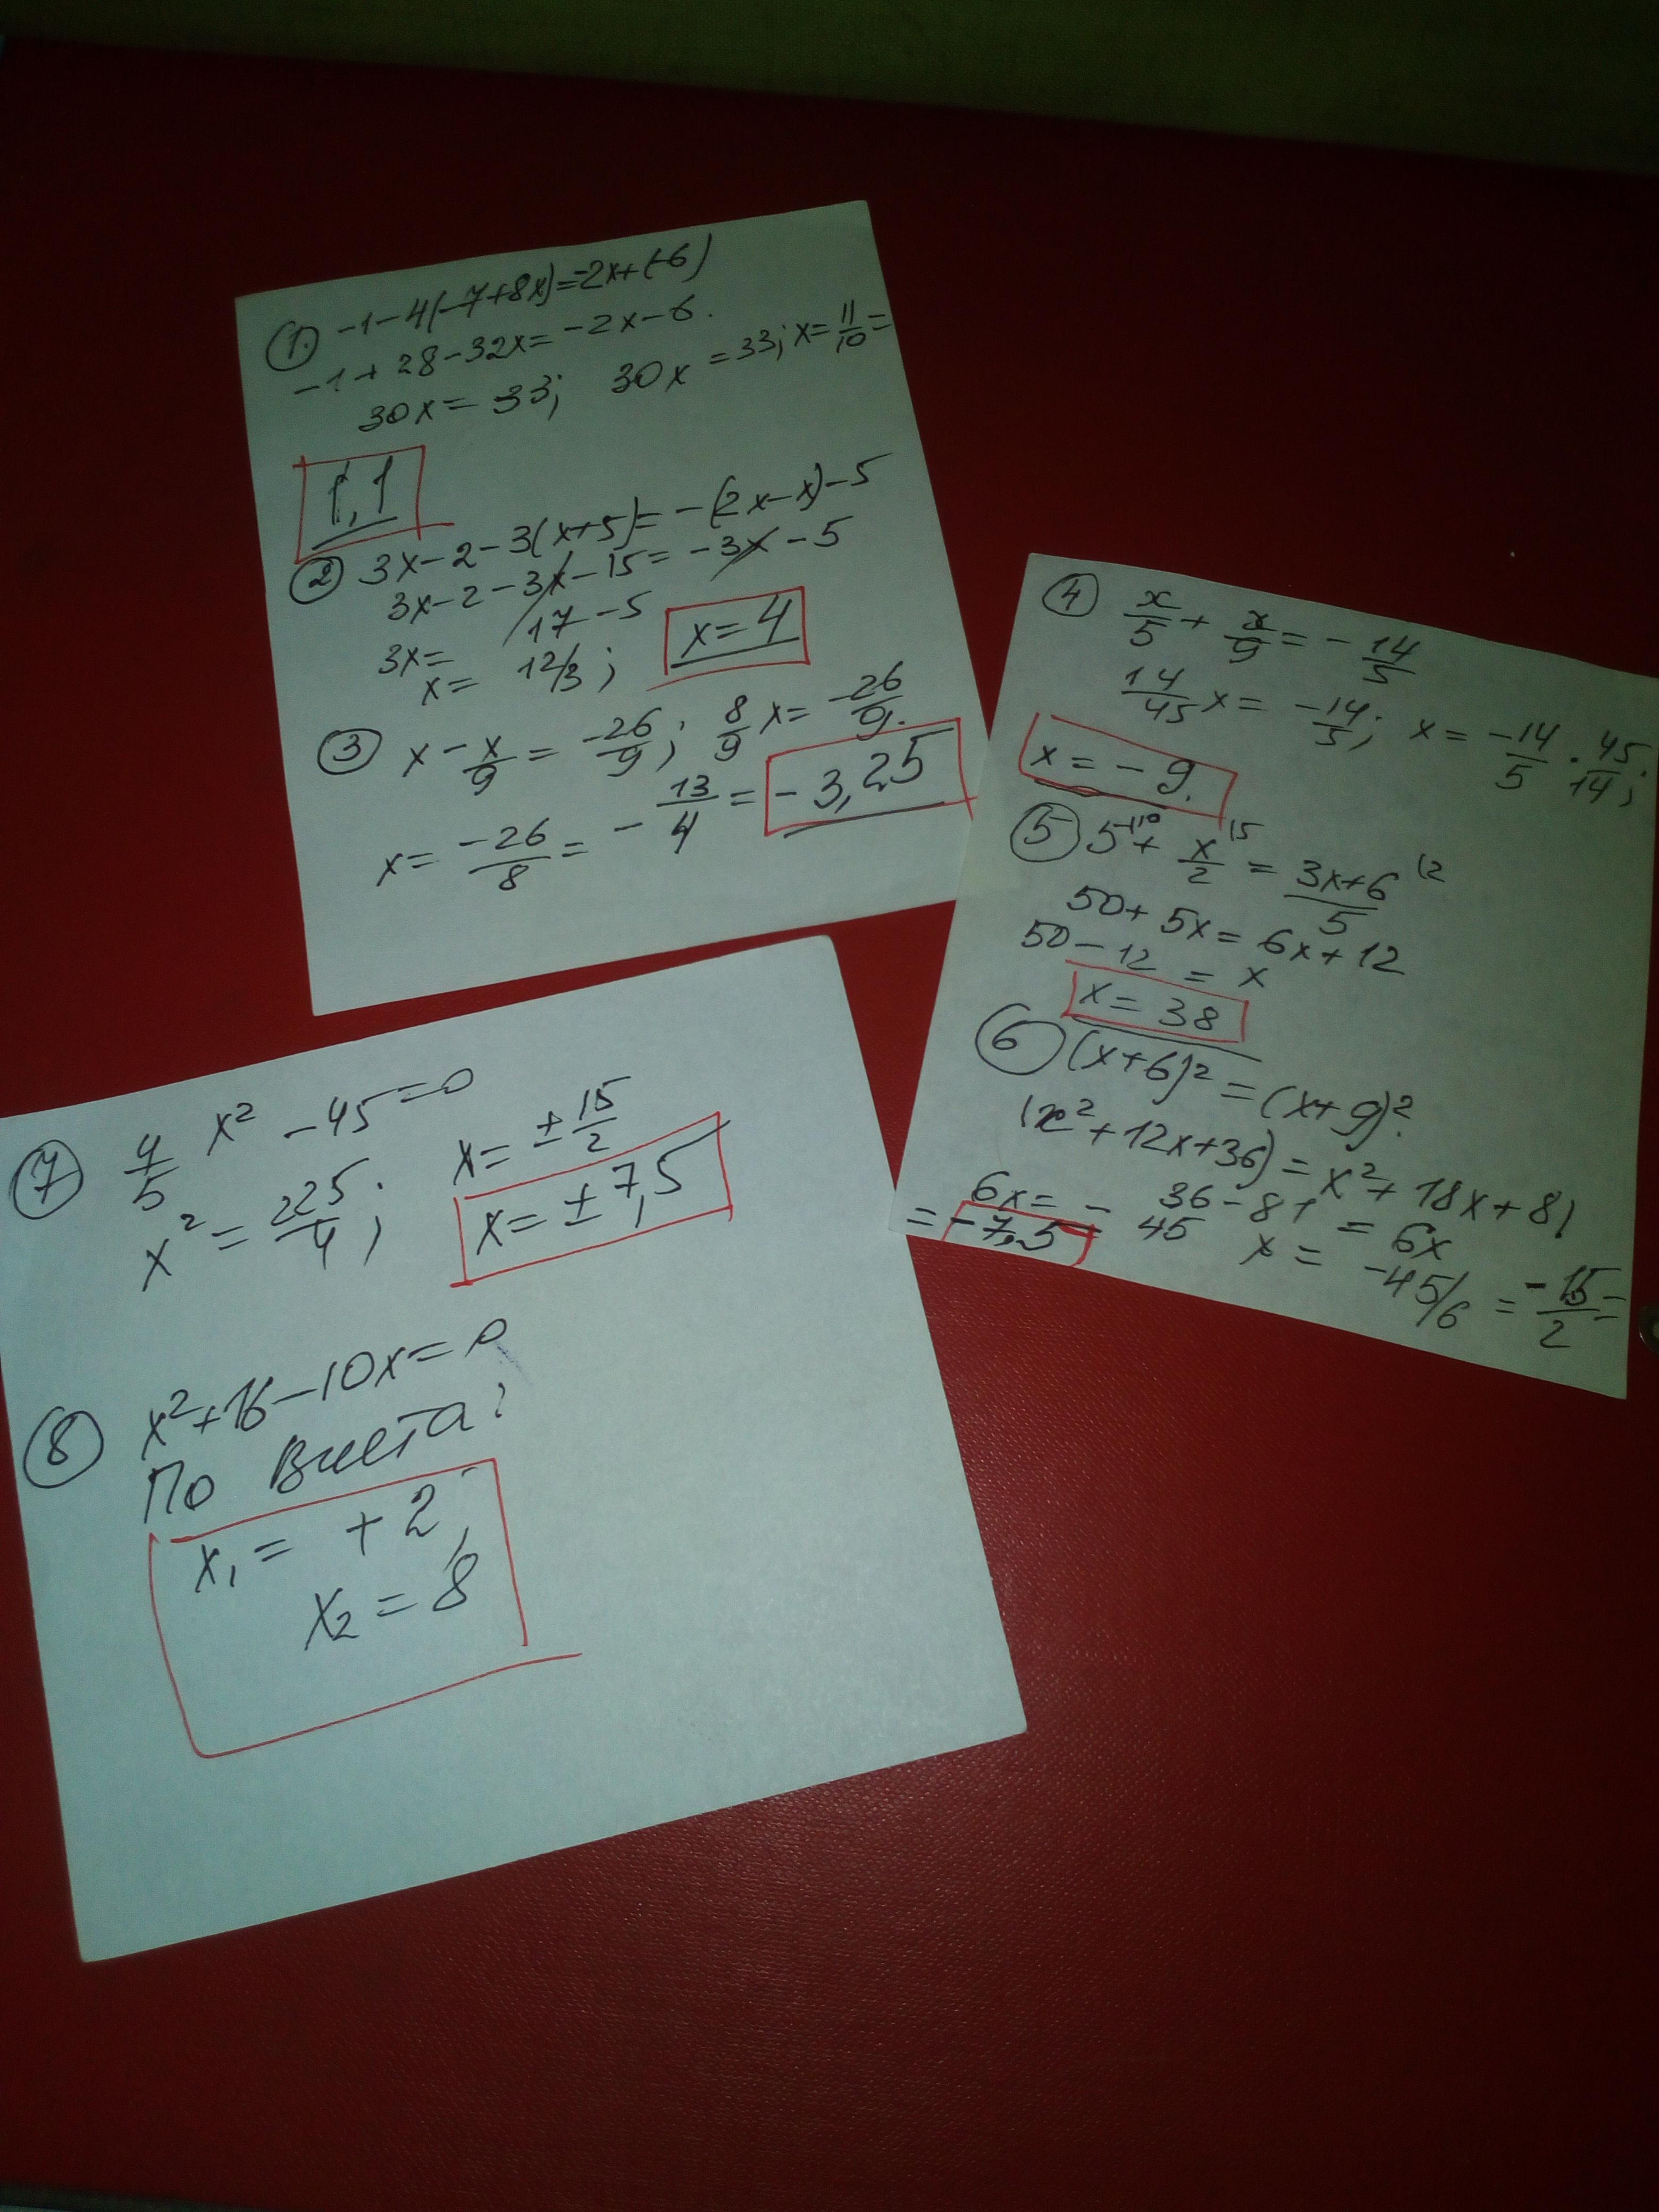 1. -1-4(-7+8x)=-2x+(-6)
-1+28-32x=-2x-6.
30x=33; 30x=33; x=11/10=
1,1
2 3x-2-3(x+5)=-(2x-x)-5
3x-2-3x-15=-3x-5
3x= 17-5
x= 12/3; x=4
3 x-x/9=-26/9; 8/9x=-26/9.
x=-26/8=-13/4=-3,25
4 x/5+x/9=-14/5
14/45x=-14/5; x=-14/5·45/14;
x=-9.
5 5+x/2=3x+6/5
50+5x=6x+12
50-12=x
x=38
6 (x+6)²=(x+9)²
(x²+12x+36)=x²+18x+81
36-81=6x
6x=-45 x=-45/6=-15/2=
=-7,5
7 4/5x²-45=0
x²=225/4; x=±15/2
x=±7,5
8 x²+16-10x=0
По Виета:
x₁=+2,
x₂=8